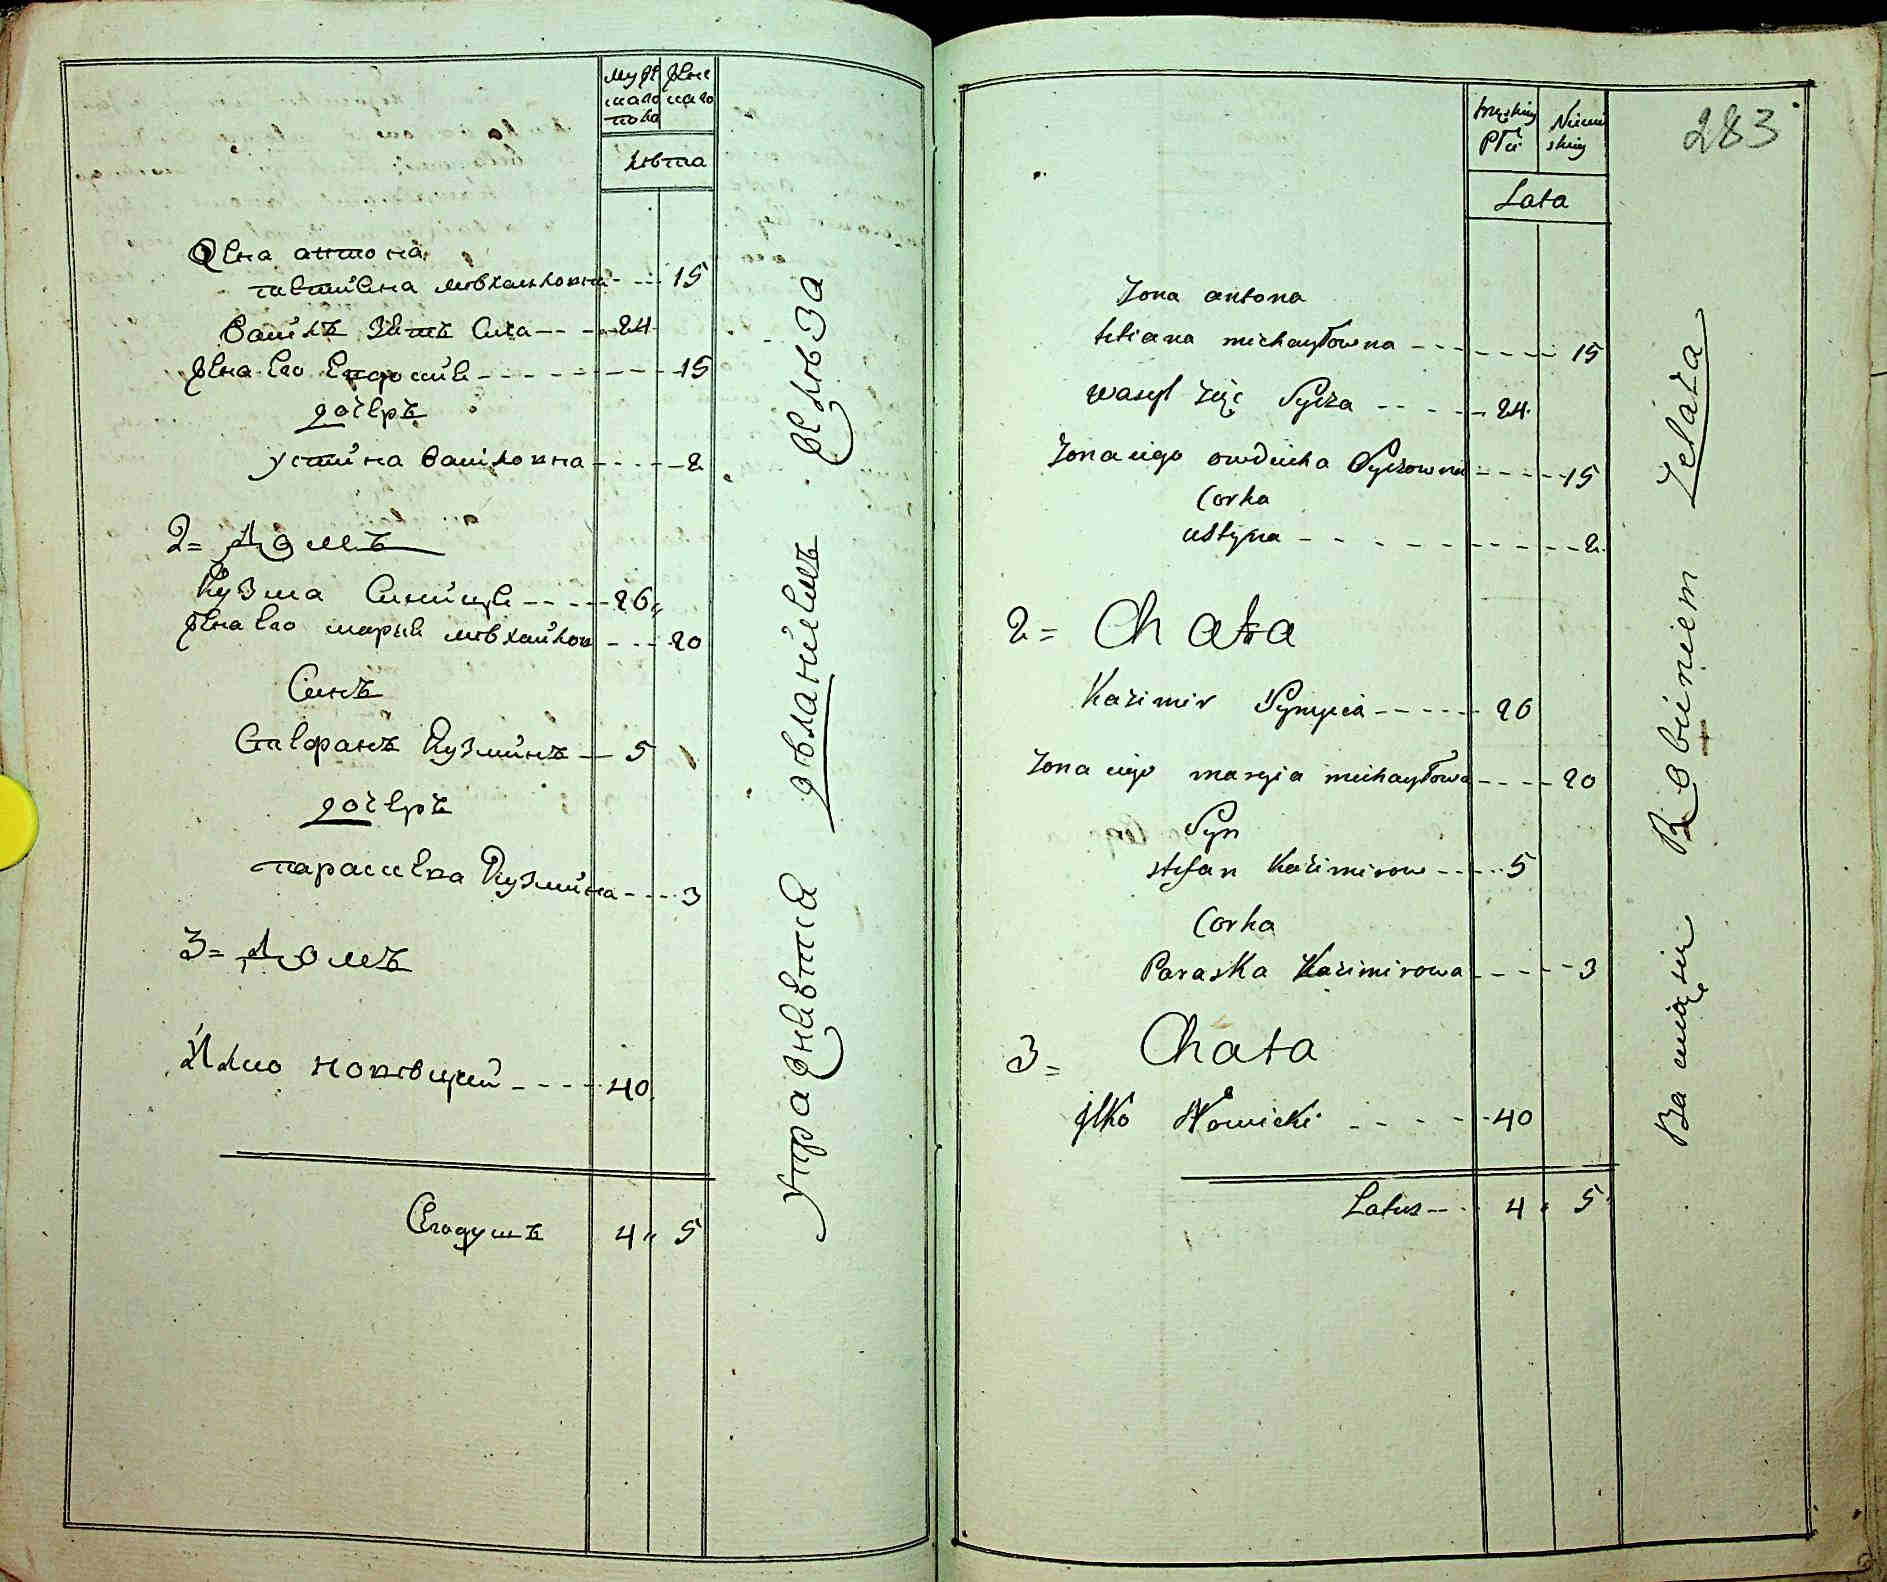 мужескаго пола
женскаго
лѣта
Жена антона
татиана михайловна - - - 15
Василь зять Сича - - - 24
Жена его - - - 15
дочерь
устина василовна - - - 2
2 = Домъ
Кузма - - - 26
Жена его мария михайлов - - - 20
Синъ
Стефанъ Кузминъ - 5
дочерь
параскева Кузмина - - - 3
3 = Домъ
Илко новицкий - - - 40
4 " 5
Упражнѣется дѣланиемъ желѣза
283
męzkiey Płci
Niewieskiey
Lata
Żona antona
tetiana michayłowna - - - 15
wasyl zięć Sycza - - - 24
Żona iego owducha Syczowna - - - 15
Corka
ustyna - - - 2
2 = Chata
Kazimir - - - 26
Żona iego maryia michayłowa - - - 20
Syn
stefan Kazimirow - - - 5
Corka
Paraska Kazimirowa - - - 3
3 = Chata
jlko Nowicki - - - 40
Latus - - 4 " 5
Ba wią sie Robieniem Żelaza